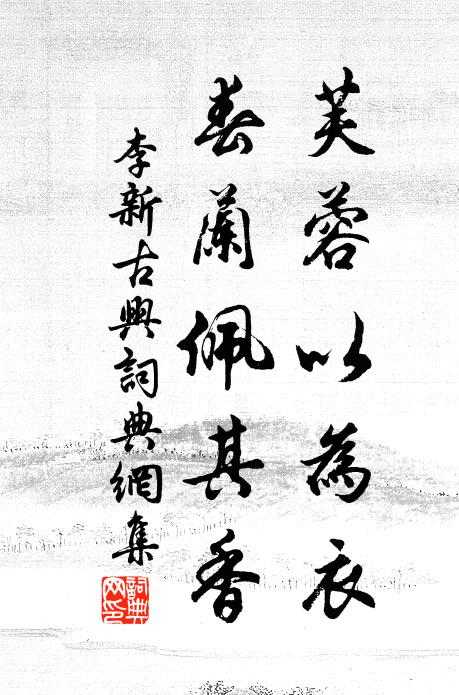 芙蓉以為衣
春蘭佩其香
李新古興詞典網集
詞典網印